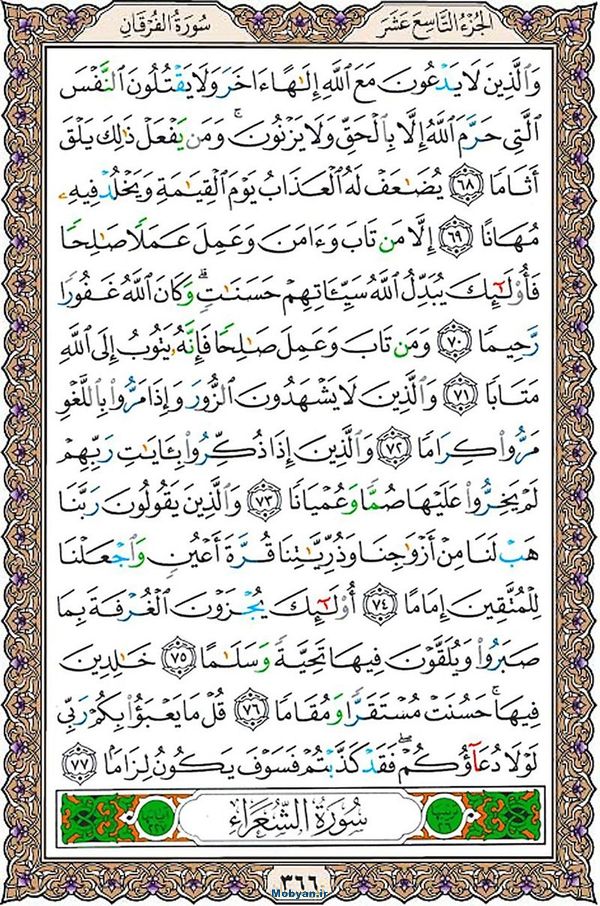 الجزء التاسع عشر
سورة الفرقان
وَٱلَّذِينَ لَا يَدْعُونَ مَعَ ٱللَّهِ إِلَٰهًا ءَاخَرَ وَلَا يَقْتُلُونَ ٱلنَّفْسَ
ٱلَّتِى حَرَّمَ ٱللَّهُ إِلَّا بِٱلْحَقِّ وَلَا يَزْنُونَ ۚ وَمَن يَفْعَلْ ذَٰلِكَ يَلْقَ
أَثَامًا ﴿٦٨﴾ يُضَٰعَفْ لَهُ ٱلْعَذَابُ يَوْمَ ٱلْقِيَٰمَةِ وَيَخْلُدْ فِيهِۦ
مُهَانًا ﴿٦٩﴾ إِلَّا مَن تَابَ وَءَامَنَ وَعَمِلَ عَمَلًا صَٰلِحًا
فَأُو۟لَٰٓئِكَ يُبَدِّلُ ٱللَّهُ سَيِّـَٔاتِهِمْ حَسَنَٰتٍ ۗ وَكَانَ ٱللَّهُ غَفُورًا
رَّحِيمًا ﴿٧٠﴾ وَمَن تَابَ وَعَمِلَ صَٰلِحًا فَإِنَّهُۥ يَتُوبُ إِلَى ٱللَّهِ
مَتَابًا ﴿٧١﴾ وَٱلَّذِينَ لَا يَشْهَدُونَ ٱلزُّورَ وَإِذَا مَرُّوا۟ بِٱللَّغْوِ
مَرُّوا۟ كِرَامًا ﴿٧٢﴾ وَٱلَّذِينَ إِذَا ذُكِّرُوا۟ بِـَٔايَٰتِ رَبِّهِمْ
لَمْ يَخِرُّوا۟ عَلَيْهَا صُمًّا وَعُمْيَانًا ﴿٧٣﴾ وَٱلَّذِينَ يَقُولُونَ رَبَّنَا
هَبْ لَنَا مِنْ أَزْوَٰجِنَا وَذُرِّيَّٰتِنَا قُرَّةَ أَعْيُنٍ وَٱجْعَلْنَا
لِلْمُتَّقِينَ إِمَامًا ﴿٧٤﴾ أُو۟لَٰٓئِكَ يُجْزَوْنَ ٱلْغُرْفَةَ بِمَا
صَبَرُوا۟ وَيُلَقَّوْنَ فِيهَا تَحِيَّةً وَسَلَٰمًا ﴿٧٥﴾ خَٰلِدِينَ
فِيهَا ۚ حَسُنَتْ مُسْتَقَرًّا وَمُقَامًا ﴿٧٦﴾ قُلْ مَا يَعْبَؤُا۟ بِكُمْ رَبِّى
لَوْلَا دُعَآؤُكُمْ ۖ فَقَدْ كَذَّبْتُمْ فَسَوْفَ يَكُونُ لِزَامًۢا ﴿٧٧﴾
سُورَةُ الشُّعَرَاءِ
٣٦٦
Mobyan.ir